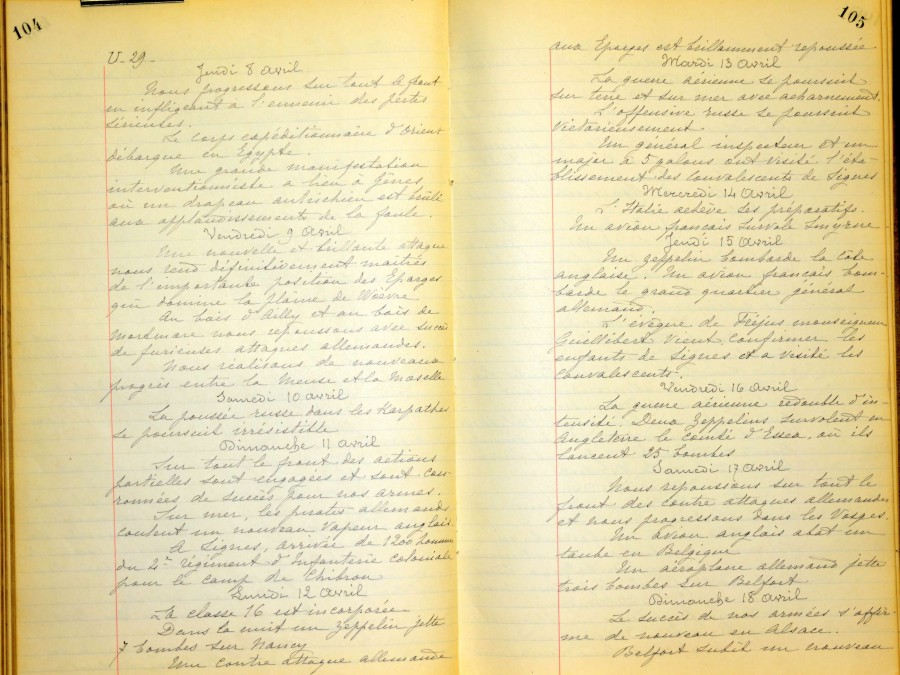 104
V-29-
Jeudi 8 Avril
Nous progressons sur tout le front
en infligeant à l'ennemi des pertes
sérieuses.
Le corps expéditionnaire d'Orient
débarque en Egypte.
Une grande manifestation
interventionniste a lieu à Gênes
où un drapeau autrichien est brûlé
aux applaudissements de la foule.
Vendredi 9 Avril
Une nouvelle et brillante attaque
nous rend définitivement maîtres
de l'importante position des Eparges
qui domine la plaine de Woëvre
Au bois d'Ailly et au bois de
Mortmare nous repoussons avec succès
de furieuses attaques allemandes.
Nous réalisons de nouveaux
progrès entre la Meuse et la Moselle
Samedi 10 avril
La poussée russe dans les Karpathes
se poursuit irrésistible
Dimanche 11 avril
Sur tout le front des actions
partielles sont engagées et sont cou-
ronnées de succès pour nos armes.
Sur mer, les pirates allemands
coulent un nouveau vapeur anglais.
A Signes, arrivée de 1200 hommes
du régiment d'Infanterie coloniale
pour le camp de Chibron
Lundi 12 Avril
La classe 16 est incorporée
Dans la nuit un zeppelin jette
7 bombes sur Nancy
Une contre attaque allemande
105
aux Eparges est brillamment repoussée
Mardi 13 Avril
La guerre aérienne se poursuit
sur terre et sur mer avec acharnement.
L'offensive russe se poursuit
victorieusement.
Un général inspecteur et un
major à 5 galons ont visité l'éta-
blissement des convalescents de Signes
Mercredi 14 Avril
L'Italie achève ses préparatifs.
Un avion français survole Smyrne-
Jeudi 15 Avril
Un zeppelin bombarde la côte
anglaise. Un avion français bom-
barde le grand quartier général
allemand.
L'évêque de Fréjus monseigneur
Guillibert vient confirmer les
enfants de Signes et a visité les
convalescents.
Vendredi 16 Avril
La guerre aérienne redouble d'in-
tensité. Deux Zeppelins survolent en
Angleterre le comté d'Essex, où ils
lancent 25 bombes
Samedi 17 Avril
Nous repoussons sur tout le
front des contre attaques allemandes
et nous progressons dans les Vosges.
Un avion anglais abat un
taube en Belgique
Un aéroplane allemand jette
trois bombes sur Belfort
Dimanche 18 Avril
Le succès de nos armées s'affir-
me de nouveau en Alsace.
Belfort subit un nouveau